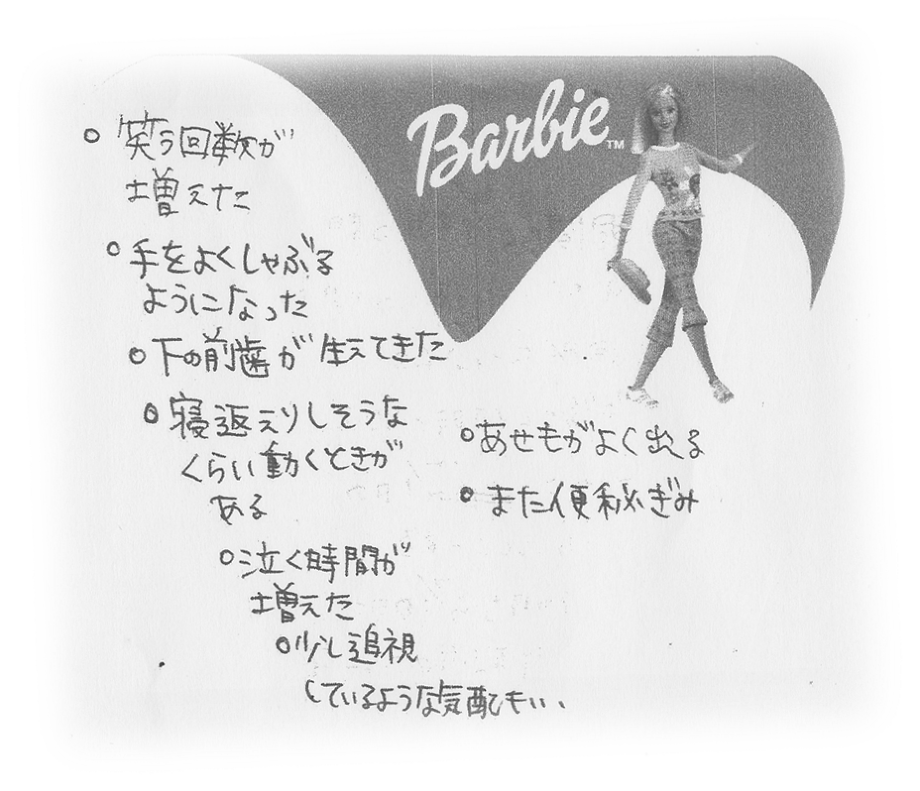 Barbie™
○ 笑う回数が
増えた
○ 手をよくしゃぶる
ようになった
○ 下の前歯が生えてきた
○ 寝返えりしそうな
くらい動くときが
ある
○ 泣く時間が
増えた
○ 少し追視
しているような気配も...
○ あせもがよく出る
○ また便秘ぎみ